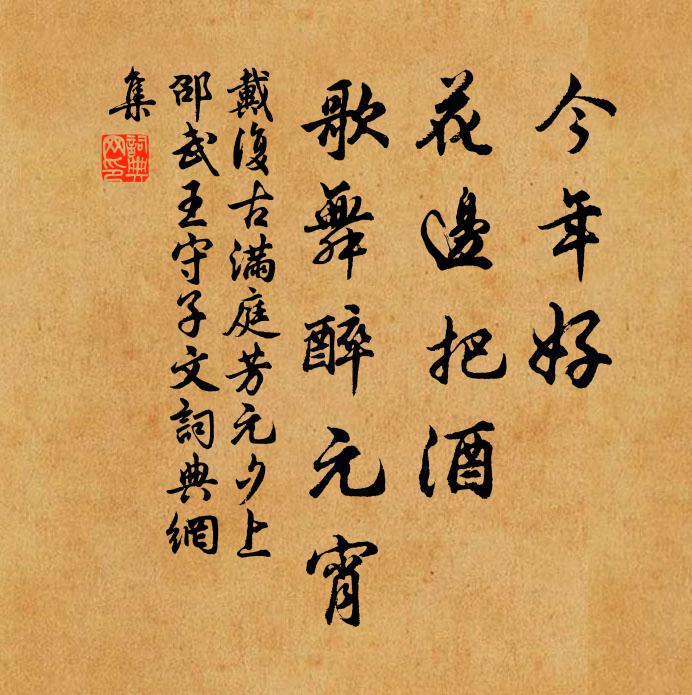 今年好
花邊把酒
歌舞醉元宵
戴復古滿庭芳元夕上
邵武王守子文詞典網
集
詞典网印